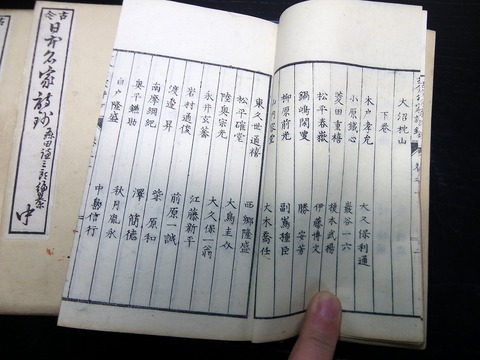 古今
日本名家詩鈔
中
大沼枕山
下巻
木戸孝允 大久保利通
小原鐵心 巌谷一六
菱田重禧 榎本武揚
松平春嶽 伊藤博文
鍋嶋閑叟 勝安芳
柳原前光 副嶌種臣
大木喬任
東久世通禧
松平確堂 西郷隆盛
陸奥宗光 大鳥圭介
永井玄蕃 大久保一翁
岩村通俊 江藤新平
渡邉昇 前原一誠
南摩綱紀 柴原和
奥平謙助 澤簡徳
白戸隆盛 秋月胤永
中島信行